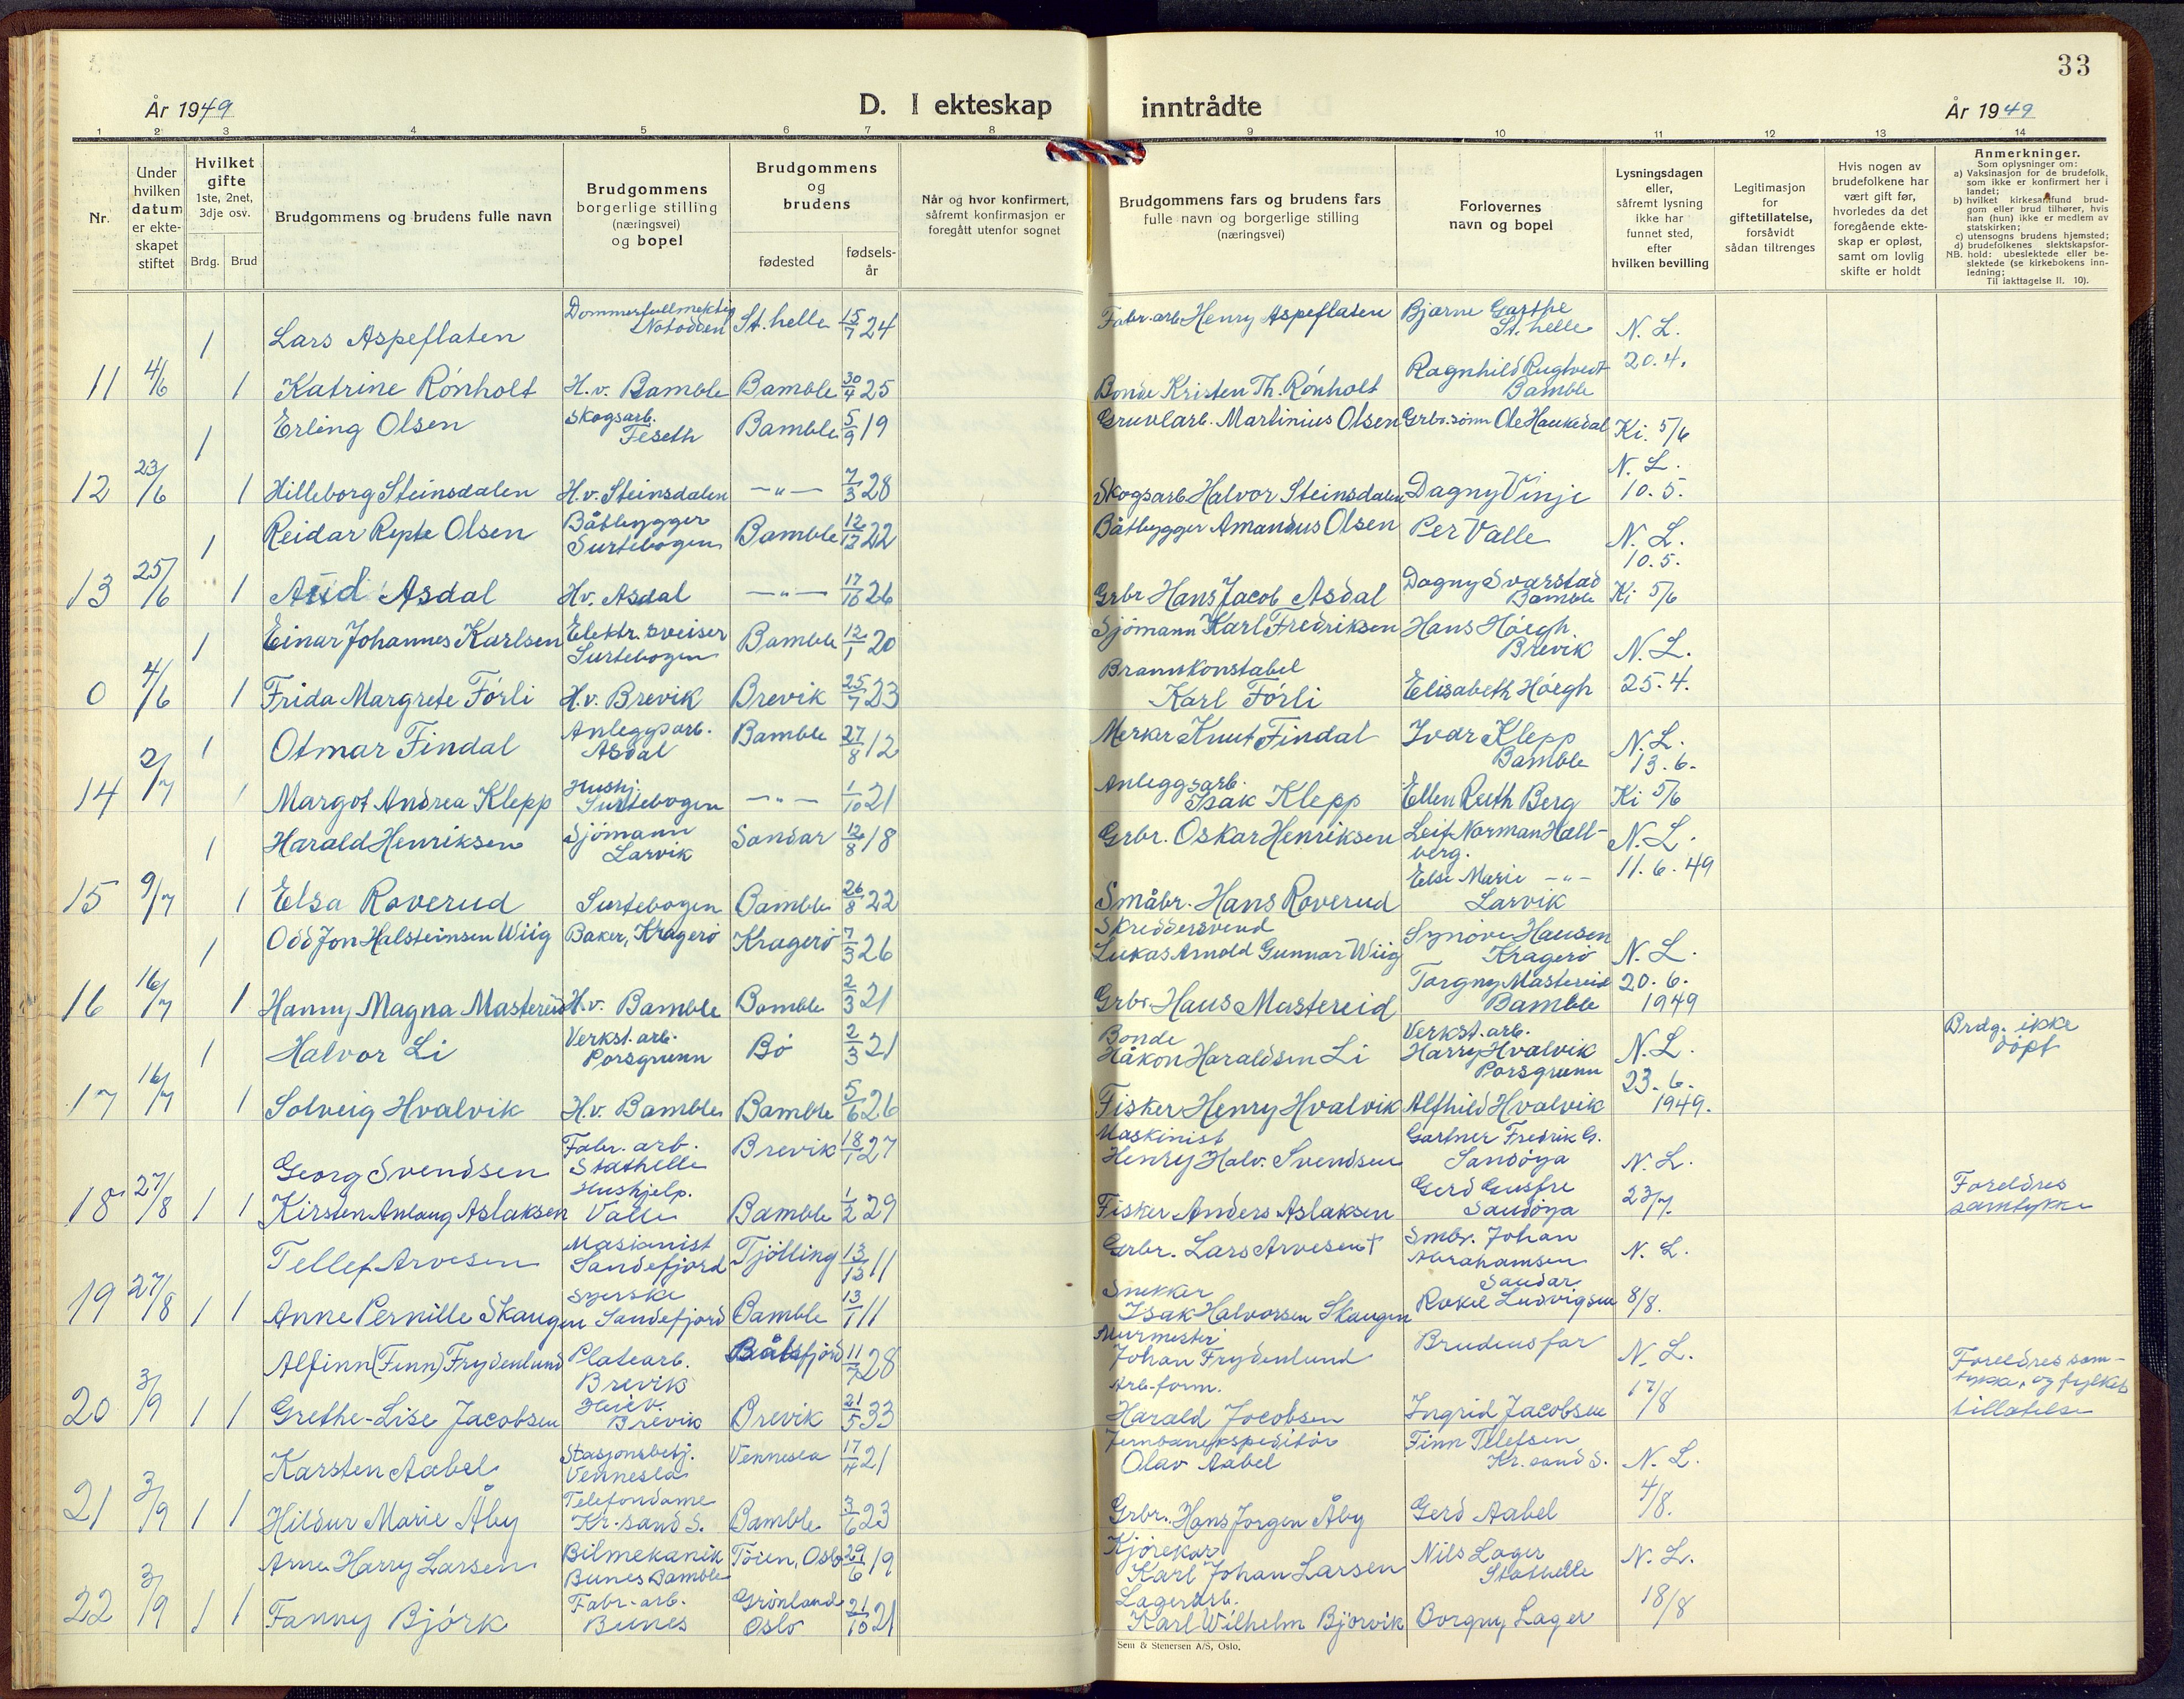 33
År 1949
D. I ekteskap inntrådte
År 1949
1 2 3 4 5 6 7 8 9 10 11 12 13 14
Nr.
Under hvilken datum er ekte-skapet stiftet
Hvilket gifte 1ste, 2net, 3dje osv.
Brdg. Brud
Brudgommens og brudens fulle navn
Brudgommens borgerlige stilling (næringsvei) og bopel
Brudgommens og brudens
fødested
fødsels-år
Når og hvor konfirmert, såfremt konfirmasjon er foregått utenfor sognet
Brudgommens fars og brudens fars fulle navn og borgerlige stilling (næringsvei)
Forlovernes navn og bopel
Lysningsdagen eller, såfremt lysning ikke har funnet sted, efter hvilken bevilling
Legitimasjon for giftetillatelse, forsåvidt sådan tiltrenges
Hvis nogen av brudefolkene har vært gift før, hvorledes da det foregående ekte-skap er opløst, samt om lovlig skifte er holdt
Anmerkninger.
Som oplysninger om:
a) Vaksinasjon for de brudefolk, som ikke er konfirmert her i landet;
b) hvilket kirkesamfund brud-gom eller brud tilhører, hvis han (hun) ikke er medlem av statskirken;
c) utensogns brudens hjemsted;
d) brudefolkenes slektskapsfor-
NB. hold: ubeslektede eller be-slektede (se kirkebokens inn-ledning;
Til iakttagelse II. 10).
1 Lars Aspeflaten Dommerfullmektig Notodden St. helle 15/7 24 Fabr. arb. Henry Aspeflaten Bjarne Garthe St. helle N. L.
11 4/6 1 Katrine Rönholt H.v. Bamble Bamble 30/4 25 Bonde Kristen Th. Rönholt Ragnhild Rugtvedt Bamble 20.4.
1 Erling Olsen Skogsarb. Feseth Bamble 5/9 19 Gruvearb. Martinius Olsen Grbr. sönn Ole Haukedal Ki. 5/6
12 23/6 1 Hilleborg Steinsdalen H.v. Steinsdalen —"— 7/3 28 Skogsarb. Halvor Steinsdalen Dagny Vinje N. L. 10.5.
1 Reidar Repte Olsen Båtbygger Surtebogen Bamble 12/12 22 Båtbygger Amandus Olsen Per Valle N. L. 10.5.
13 25/6 1 Aud Asdal Hv. Asdal —"— 17/10 26 Grbr Hans Jacob Asdal Dagny Svarstad Bamble Ki 5/6
1 Einar Johannes Karlsen Elektr. sveiser Surtebogen Bamble 12/1 20 Sjömann Karl Fredriksen Hans Höegh Brevik N. L.
0 4/6 1 Frida Margrete Förli H.v. Brevik Brevik 25/7 23 Brannkonstabel Karl Förli Elisabeth Höegh 25.4.
1 Otmar Findal Anleggsarb. Asdal Bamble 27/8 12 Knut Findal Ivar Klepp Bamble N. L. 13.6.
14 2/7 1 Margot Andrea Klepp Hushj. Surtebogen —"— 1/10 21 Anleggsarb. Isak Klepp Ellen Ruth Berg Ki 5/6
1 Harald Henriksen Sjömann Larvik Sandar 12/8 18 Grbr. Oskar Henriksen Leif Norman Hall-berg. N. L.
15 9/7 1 Elsa Roverud Surtebogen Bamble 26/8 22 Småbr. Hans Roverud Else Marie —"— Larvik 11.6.49
1 Odd Jon Halsteinsen Wiig Baker, Kragerö Kragerö 7/3 26 Skreddersvend Lukas Arnold Gunnar Wiig Synöve Hansen Kragerö N. L.
16 16/7 1 Hanny Magna Mastereid H.v. Bamble Bamble 2/3 21 Grbr. Hans Mastereid Torgny Mastereid Bamble 20.6. 1949
1 Halvor Li Verkst. arb. Porsgrunn Bö 2/3 21 Bonde Håkon Haraldsen Li Verkst. arb. Harry Hvalvik Porsgrunn N. L. Brdg. ikke döpt
17 16/7 1 Solveig Hvalvik H.v. Bamble Bamble 5/6 26 Fisker Henry Hvalvik Alfhild Hvalvik 23.6. 1949.
Georg Svendsen Fabr. arb. Stathelle Brevik 18/1 27 Maskinist Henry Halv. Svendsen Gartner Fredrik G. Sandöya N. L.
18 27/8 1 1 Kirsten Anlaug Aslaksen Hushjelp. Valle Bamble 1/2 29 Fisker Anders Aslaksen Gerd Gusfre Sandöya 23/7. Foreldres samtykke
Tellef Arvesen Maskinist Sandefjord Tjölling 13/12 11 Grbr. Lars Arvesen † Smbr. Johan Abrahamsen Sandar N. L.
19 27/8 1 1 Anne Pernille Skaugen Syerske Sandefjord Bamble 13/1 11 Snekker Isak Halvorsen Skaugen Rakel Ludvigsen 8/8.
Alfinn (Finn) Frydenlund Platearb. Brevik Båtsfjord 11/7 28 Murmester Johan Frydenlund Brudens far N. L.
20 3/9 1 1 Grethe-Lise Jacobsen Brevik Brevik 21/5 33 Arb. form. Harald Jacobsen Ingrid Jacobsen 17/8 Foreldres sam-tykke, og fylkets tillatelse
Karsten Aabel Stasjonsbetj. Vennesla Vennesla 17/4 21 Jernbaneekspeditör Olav Aabel Finn Tellefsen Kr. sand S. N. L.
21 3/9 1 1 Hildur Marie Åby Telefondame Kr. sand S. Bamble 3/6 23 Grbr. Hans Jörgen Åby Gerd Aabel 4/8.
Arne Harry Larsen Bilmekanik Bunes Bamble Töien, Oslo 29/6 19 Kjörekar Karl Johan Larsen Nils Lager Stathelle N. L.
22 3/9 1 1 Fanny Björk Fabr. arb. Bunes Grönland Oslo 21/10 21 Lagerarb. Karl Wilhelm Bjørvik Borgny Lager 18/8
Sem & Stenersen A/S, Oslo.